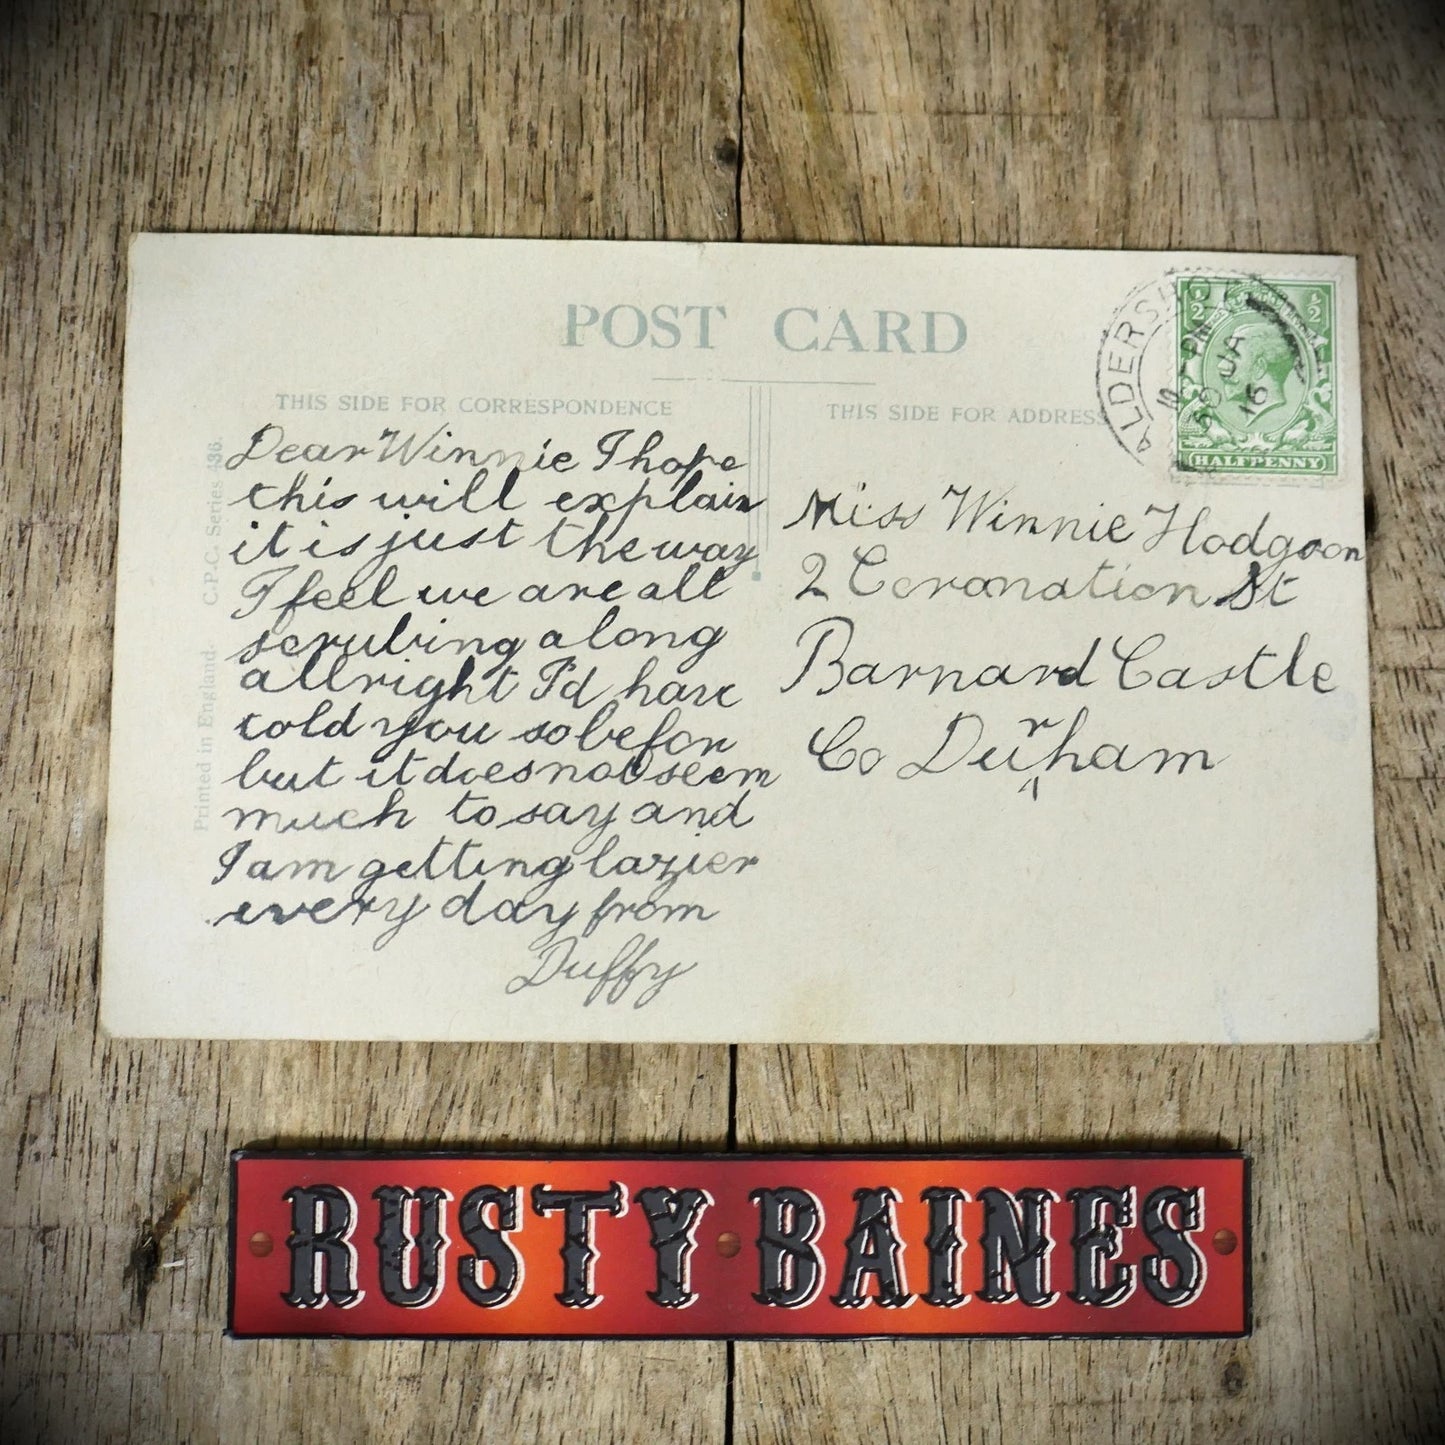 POST CARD
THIS SIDE FOR CORRESPONDENCE
THIS SIDE FOR ADDRESS
Printed in England. C.P.C. Series 136.
Dear Winnie I hope
this will explain
it is just the way
I feel we are all
scrubing along
allright I'd have
told you so befor
but it does not seem
much to say and
I am getting lazier
every day from
Duffy
ALDERSHOT
PM
JA
16
½ ½
HALFPENNY
Miss Winnie Hodgson
2 Coronation St
Barnard Castle
Co Durham
RUSTY BAINES